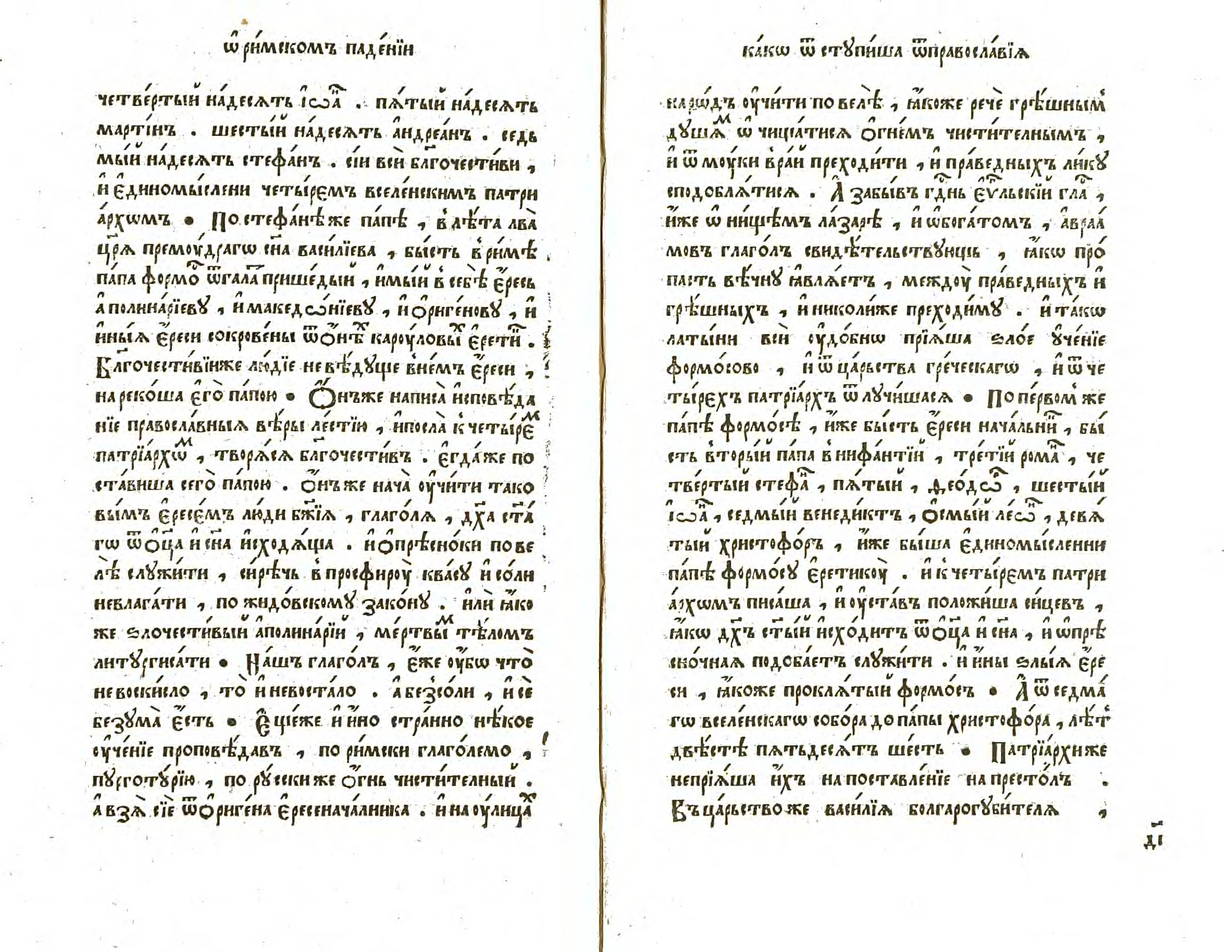 ѡ҆ ри́мскомъ паде́нїи
четве́ртый на́десѧть і҆ѡа҃ . пѧ́тый на́десѧть
марті́нъ . шесты́й на́десѧть а҆ндреа́нъ . седь
мы́й на́десѧть стефа́нъ . сі́и всѝ бл҃гочести́ви ,
и҆ є҆диномы́слени четы́ремъ вселе́нскимъ патри
а́рхѡмъ • По стефа́нѣже па́пѣ , в лѣ́та лва̀
цр҃ѧ̀ премоу́драгѡ сн҃а васи́лїева , бы́сть в ри́мѣ
па́па формо́ ѿгала пришедый , и҆мы́й в себѣ̀ є҆ресь
а҆полина́рїеву , и҆ македѡ́нїеву , и҆ ѻ҆риге́нову , и҆
и҆ны́ѧ є҆реси сокрове́ны ѿ ѻ҆нѣⷯ кароу́ловыⷯ є҆рети́ⷦ .
Бл҃гочести́вїиже лю́дїе невѣ́дуще в не́мъ є҆реси ,
нареко́ша є҆го̀ па́пою • Ѻ҆нъже написа̀ и҆сповѣ́да
нїе правосла́вныѧ вѣ́ры ле́стїю , и҆посла̀ к четы́реⷨ
патрїа́рхѡⷨ , творѧ́сѧ бл҃гочести́въ . є҆гда́же по
ста́виша сего̀ па́пою . ѻ҆нъже нача̀ оу҆чи́ти тако
вы́мъ є҆ресе́мъ лю́ди бж҃їѧ , глаго́лѧ , дх҃а ст҃а́
гѡ ѿ ѻ҆ц҃а и҆ сн҃а и҆сходѧ́ща . и҆ ѻ҆прѣсно́ки пове
лѣ̀ служи́ти , си́рѣчь в просфироу̀ ква́су и҆ со́ли
невлага́ти , по жидо́вскому зако́ну . и҆лѝ ꙗ҆ко
же ѕлочести́вый а҆полина́рїй , ме́ртвыⷨ тѣ́ломъ
литургиса́ти • На́шъ глаго́лъ , є҆́же оу҆́бѡ что̀
невоски́сло , то̀ и҆невоста́ло . а҆безсо́ли , и҆сѐ
безума̀ є҆́сть • Є҆щѐже и҆ и҆́но стра́нно нѣ́кое
оу҆че́нїе проповѣ́давъ , по ри́мски глаго́лемо ,
пурготу́рїю , по ру́сски же ѻ҆́гнь чисти́тельный .
а҆ взѧ̀ сїѐ ѿ ѻ҆риге́на є҆ресенача́лника . и҆ на оу҆́лицаⷯ
ка́кѡ ѿ ступи́ша ѿправосла́вїѧ
наро́дъ оу҆чи́ти повелѣ̀ , ꙗ҆́коже речѐ грѣ́шныⷨ
душа́ⷨ ѡ҆чища́тисѧ ѻ҆гне́мъ чисти́телнымъ ,
и҆ ѿ моу́ки в ра́й преходи́ти , и҆ пра́ведныхъ ли́ку
сподоблѧ́тисѧ . А҆ забы́въ гд҇нь є҆ѵⷢ҇льскїй глаⷭ ,
и҆́же ѡ҆ ни́щѣмъ ла́зарѣ , и҆ ѡ҆бога́томъ , а҆враа́
мовъ глаго́лъ свидѣ́тельствующь , ꙗ҆́кѡ про́
пасть вѣ́чну ꙗ҆влѧ́етъ , междоу̀ пра́ведныхъ и҆
грѣ́шныхъ , и҆ николи́же преходи́му . и҆ та́кѡ
латы́ни всѝ оу҆до́бнѡ прїѧ́ша ѕло́е уче́нїе
формо́сово , и҆ ѿ ца́рьства гре́ческагѡ , и҆ ѿ че
ты́рехъ патрїа́рхъ ѿлучи́шасѧ • По пе́рвомже
па́пѣ формо́сѣ , и҆́же бы́сть є҆реси нача́льниⷦ , бы́
сть вторы́й па́па внифа́нтїй , тре́тїй рома́ⷩ , че
тве́ртый стефа́ⷩ , пѧ́тый , ѳео́дѡⷬ , шесты́й
і҆ѡа́ⷩ , седмы́й венеди́ктъ , ѻ҆смы́й ле́ѡⷩ , девѧ́
тый христофо́ръ , и҆́же бы́ша є҆диномы́сленни
па́пѣ формо́су є҆ретикоу̀ . и҆ к четы́ремъ патри
а́рхомъ писа́ша , и҆ оу҆ста́въ положи́ша си́цевъ ,
ꙗ҆́кѡ дх҃ъ ст҃ы́й и҆схо́дитъ ѿ ѻ҆ц҃а и҆ сн҃а , и҆ ѡ҆прѣ
сно́чнаѧ подоба́етъ служи́ти . и҆ и҆́ны ѕлы́ѧ є҆ре
си , ꙗ҆́коже проклѧ́тый формо́съ • А҆ ѿ седма́
гѡ вселе́нскагѡ собо́ра до па́пы христофо́ра , лѣ́тъ
двѣ́стѣ пѧтьдесѧ́тъ ше́сть • Патрїа́рхиже
непрїѧ́ша и҆́хъ на поставле́нїе на престо́лъ .
Въ ца́рьствоже васи́лїѧ болгарогуби́телѧ ,
д҃і